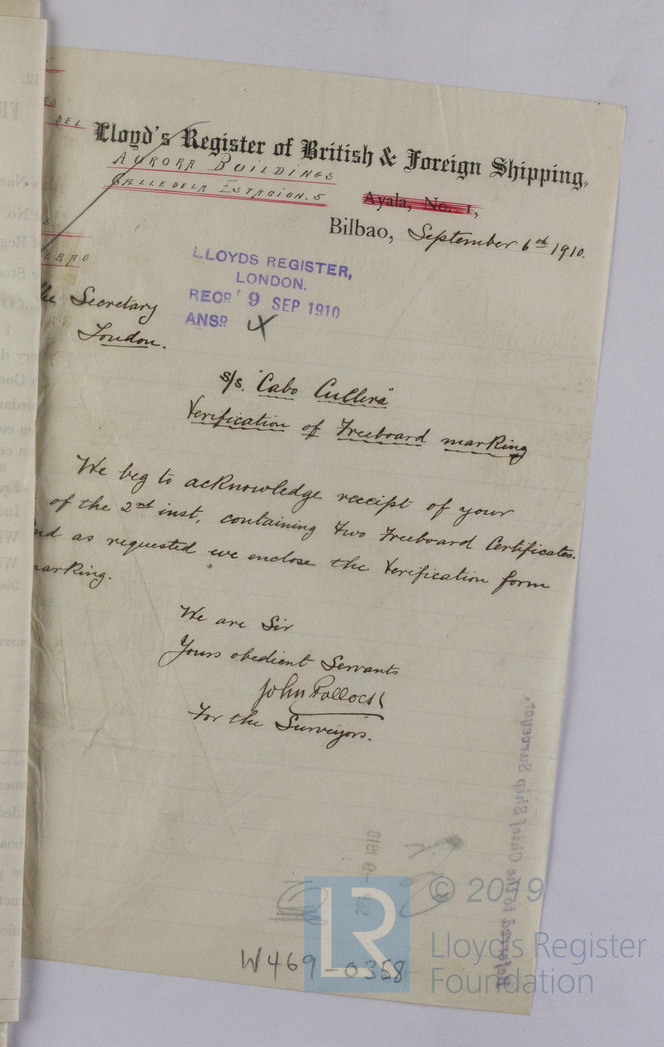 Lloyd's Register of British & Foreign Shipping,
AURORA BUILDINGS
CALLE DE LA ESTACION. 5
Ayala, No. 1,
Bilbao, September 6th 1910.
LLOYDS REGISTER,
LONDON.
RECD 9 SEP 1910
ANSD
The Secretary
London.
s/s. "Cabo Cullera"
Verification of Freeboard marking
We beg to acknowledge receipt of your
of the 2nd inst, containing two Freeboard Certificates.
and as requested we enclose the Verification form
marking.
We are Sir
Yours obedient Servants
John Pollock
For the Surveyors.
Referred to the Chief Ship Surveyor.
W469-0358
LR
© 2019
Lloyd's Register
Foundation